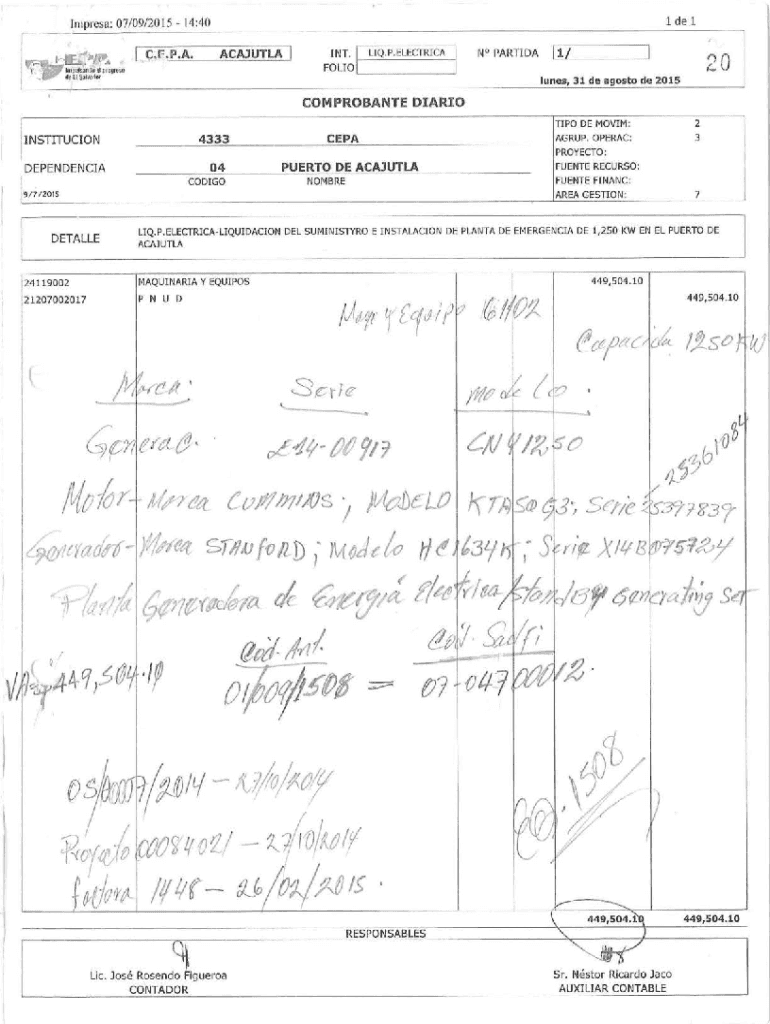 Impresa: 07/09/2015 - 14:40 1 de 1
CEPA
Impulsando el progreso
de El Salvador
C.E.P.A. ACAJUTLA INT. LIQ.P.ELECTRICA Nº PARTIDA 1/ 20
FOLIO
lunes, 31 de agosto de 2015
COMPROBANTE DIARIO
INSTITUCION 4333 CEPA
DEPENDENCIA 04 PUERTO DE ACAJUTLA
CODIGO NOMBRE
9/7/2015
TIPO DE MOVIM: 2
AGRUP. OPERAC: 3
PROYECTO:
FUENTE RECURSO:
FUENTE FINANC:
AREA GESTION: 7
DETALLE
LIQ.P.ELECTRICA-LIQUIDACION DEL SUMINISTYRO E INSTALACION DE PLANTA DE EMERGENCIA DE 1,250 KW EN EL PUERTO DE
ACAJUTLA
24119002 MAQUINARIA Y EQUIPOS 449,504.10
21207002017 P N U D 449,504.10
Maq. y Equipo 61102
Capacida 1250KW
Marca: Serie Modelo.
Generac. E14-00917 CNY1250
25361084
Motor-Marca CUMMINS; MODELO KTA50G3; Serie 25397839
Generador-Marca STANFORD; Modelo HC1634K; Serie X14B075724
Planta Generadora de Energía Electrica/Stand By Generating Set
Cod. Ant. Cod. Saffi
449,504.10 01/009/1508 = 07-04700012.
OS/0007/2014 - 27/10/2014
1508
Proyecto 00084021 - 27/10/2014
factura 1448 - 26/02/2015.
449,504.10 449,504.10
RESPONSABLES
Lic. José Rosendo Figueroa Sr. Néstor Ricardo Jaco
CONTADOR AUXILIAR CONTABLE